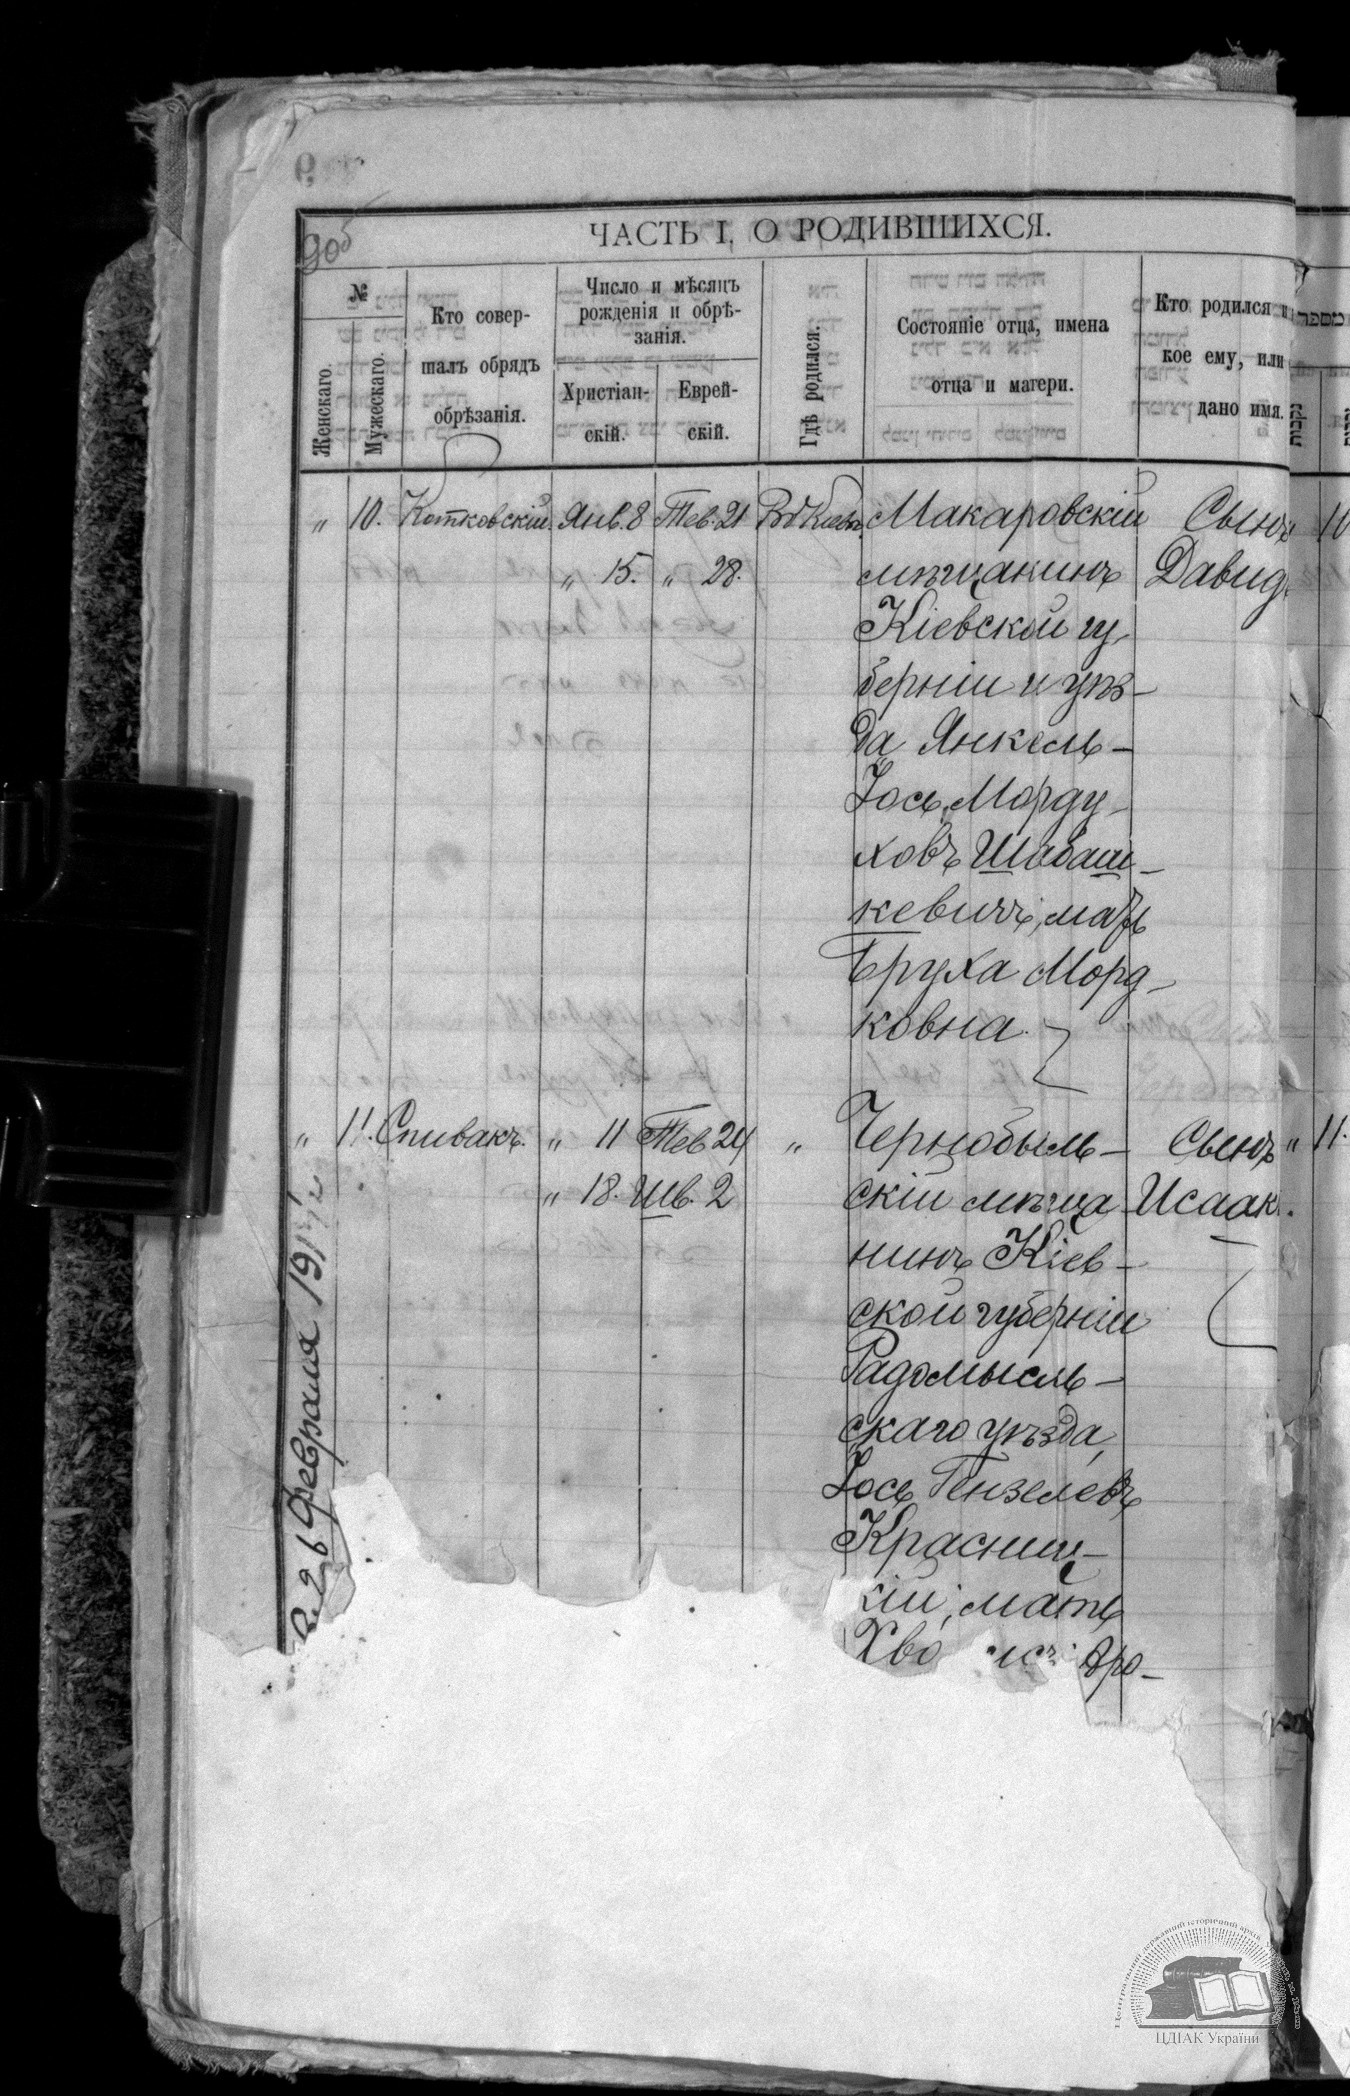 ЧАСТЬ I, О РОДИВШИХСЯ.
№
Женскаго.
Мужескаго.
Кто совер-
шалъ обрядъ
обрѣзанія.
Число и мѣсяцъ
рожденія и обрѣ-
занія.
Христіан-
скій.
Еврей-
скій.
Гдѣ родился.
Состояніе отца, имена
отца и матери.
Кто родился и
кое ему, или
дано имя.
מספר
„ 10. Котковскій Янв. 8 Тев. 21 Въ Кіевѣ. Макаровскій Сынъ
„ 15. „ 28. мѣщанинъ Давидъ
Кіевской гу-
берніи и уѣз-
да Янкель-
Іось Морду-
ховъ Шабаш-
кевичъ, мать
Бруха Морд-
ковна.
„ 11. Спивакъ. „ 11 Тев 24 „ Чернобыль- Сынъ „ 11.
„ 18. Шв. 2 скій мѣща- Исаак.
нинъ Кіев-
ской губерніи
Радомысль-
скаго уѣзда,
Іось Гензелевъ
Красниц-
кій, мать
Хво
26 Февраля 191
ЦДІАК України